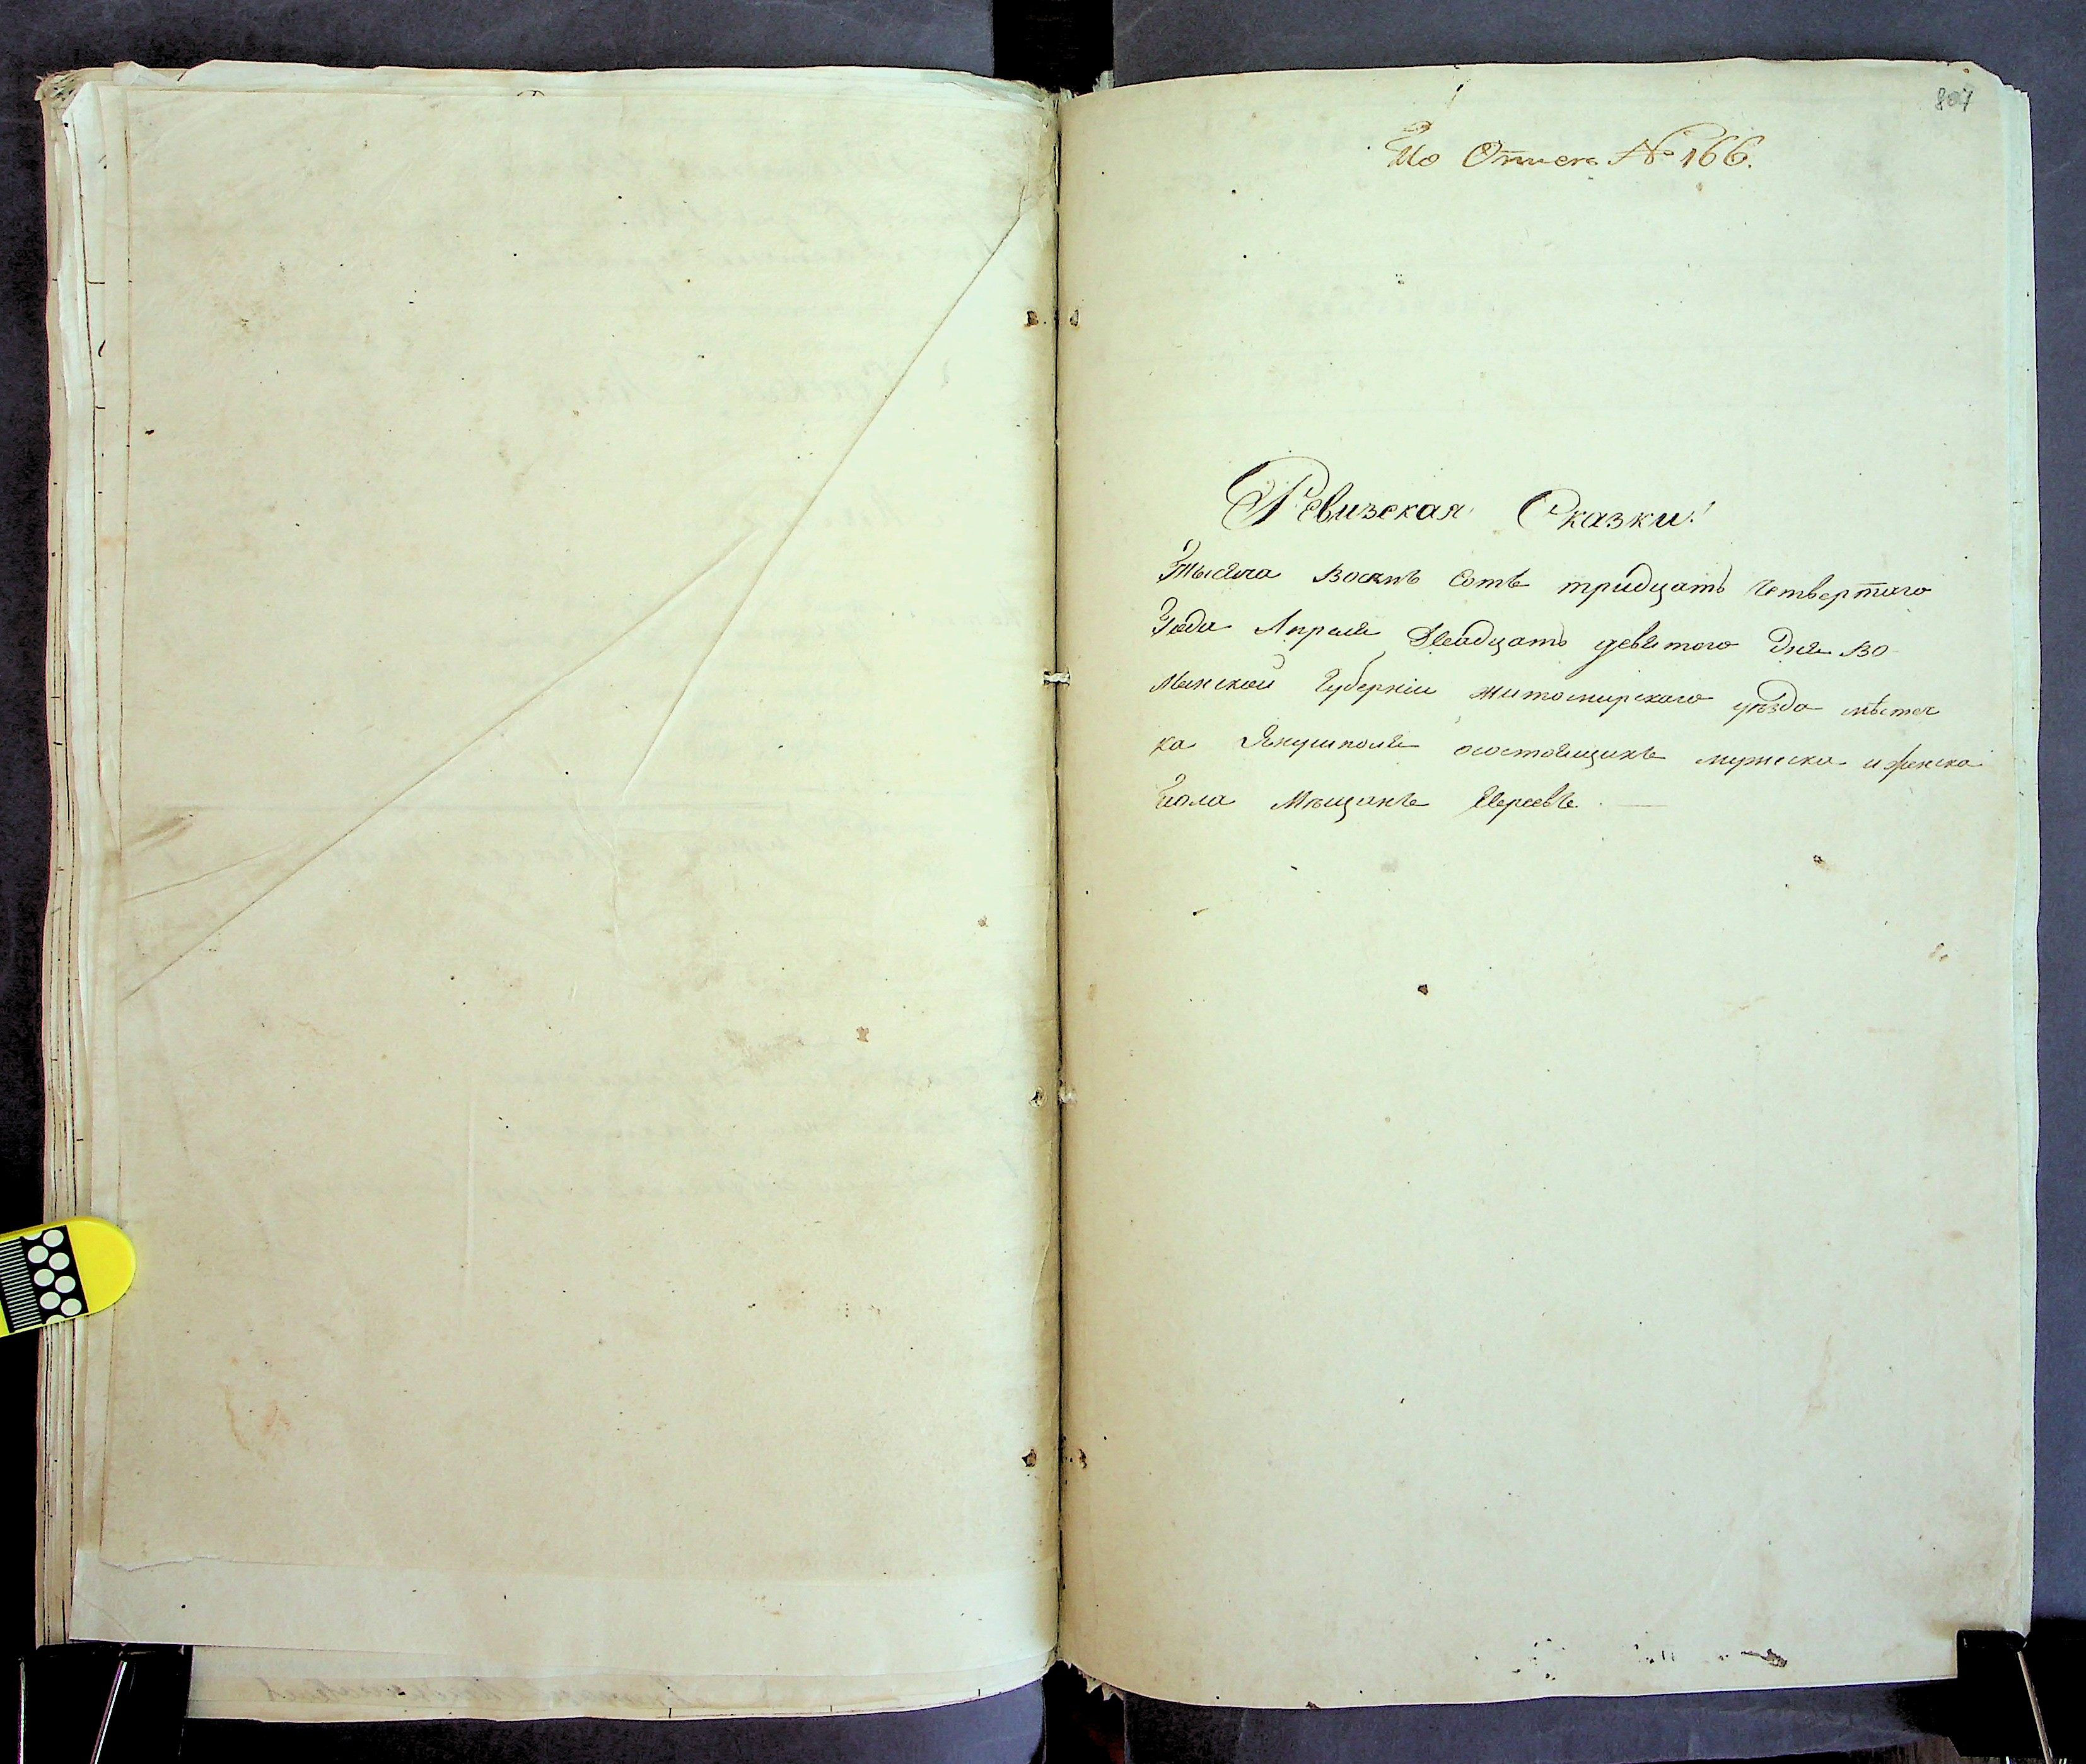 807
По Описи № 166.
Ревизская Сказки:
Тысяча восемь сотъ тридцать четвертаго
Года Апреля двадцать девятого дня во
лынской Губерніи житомирскаго уѣзда мѣстеч
ка Янушполя осостоящихъ мужеска и женска
пола мѣщанъ Евреевъ